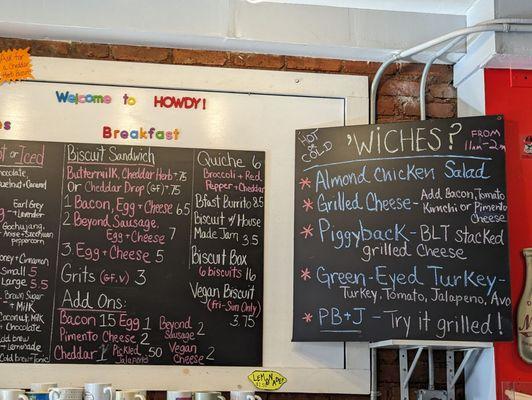 Ask for
a Cheddar
Herb
Welcome to HOWDY!
Breakfast
or Iced
Earl Grey
+ Lavender
Small 5
Large 5.5
Brown Sugar
+ Milk
Coconut, Milk
+ Chocolate
Lemonade
Cold brew + Tonic
Biscuit Sandwich
Buttermilk, Cheddar Herb +.75
or Cheddar Drop (GF) +.75
1 Bacon, Egg + Cheese 6.5
2 Beyond Sausage,
Egg + Cheese 7
3. Egg + Cheese 5
Grits (GF, V) 3
Add Ons:
Bacon 1.5 Egg 1
Pimento Cheese 2
Cheddar 1 Pickled Jalapeño .50
Beyond
Sausage 2
Vegan
Cheese 2
Quiche 6
Broccoli + Red
Pepper + Cheddar
Bfast Burrito 8.5
Biscuit w/ House
Made Jam 3.5
Biscuit Box
6 biscuits 16
Vegan Biscuit
(Fri-Sun Only)
3.75
LEMON
HOT
or
COLD
'Wiches?
FROM
11am-2pm
* Almond Chicken Salad
* Grilled Cheese - Add Bacon, Tomato
Kimchi or Pimento
Cheese
* Piggyback - BLT stacked
grilled Cheese
* Green-Eyed Turkey -
Turkey, Tomato, Jalapeno, Avo
* PB+J - Try it grilled!